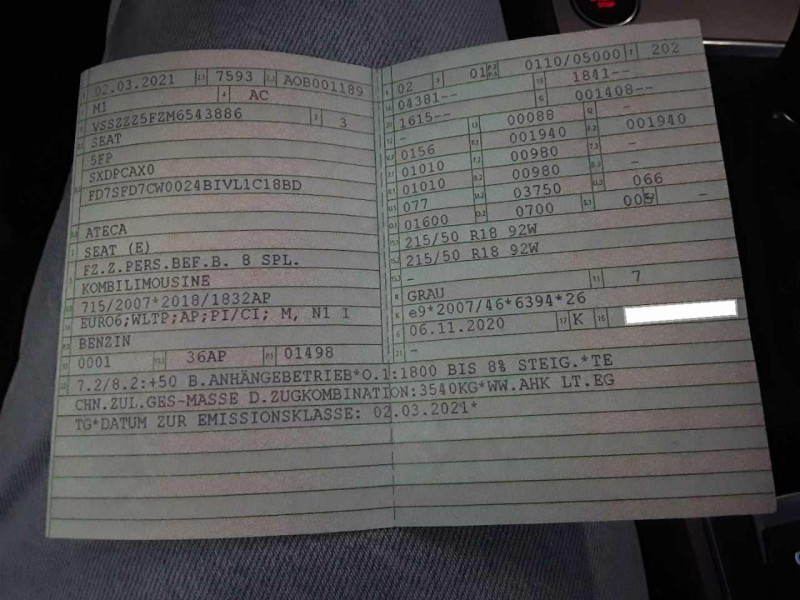 02.03.2021 2.1 7593 2.2 AOB001189
M1 4 AC
VSSZZZ5FZM6543886 3 3
SEAT
5FP
SXDPCAX0
FD7SFD7CW0024BIVL1C18BD
ATECA
SEAT (E)
FZ.Z.PERS.BEF.B. 8 SPL.
KOMBILIMOUSINE
715/2007*2018/1832AP
EURO6;WLTP;AP;PI/CI; M, N1 I
BENZIN
0001 36AP 01498
02 9 01 P.2 P.4 0110/05000 T 202
04381-- 18 1841--
1615-- G 001408--
- 13 00088 Q -
0156 001940 001940
01010 00980 -
01010 00980 -
077 03750 066
01600 0700 005 -
215/50 R18 92W
215/50 R18 92W
-
R GRAU 11 7
K e9*2007/46*6394*26
6 06.11.2020 17 K 16
21 -
7.2/8.2:+50 B.ANHÄNGEBETRIEB*O.1:1800 BIS 8% STEIG.*TE
CHN.ZUL.GES-MASSE D.ZUGKOMBINATION:3540KG*WW.AHK LT.EG
TG*DATUM ZUR EMISSIONSKLASSE: 02.03.2021*